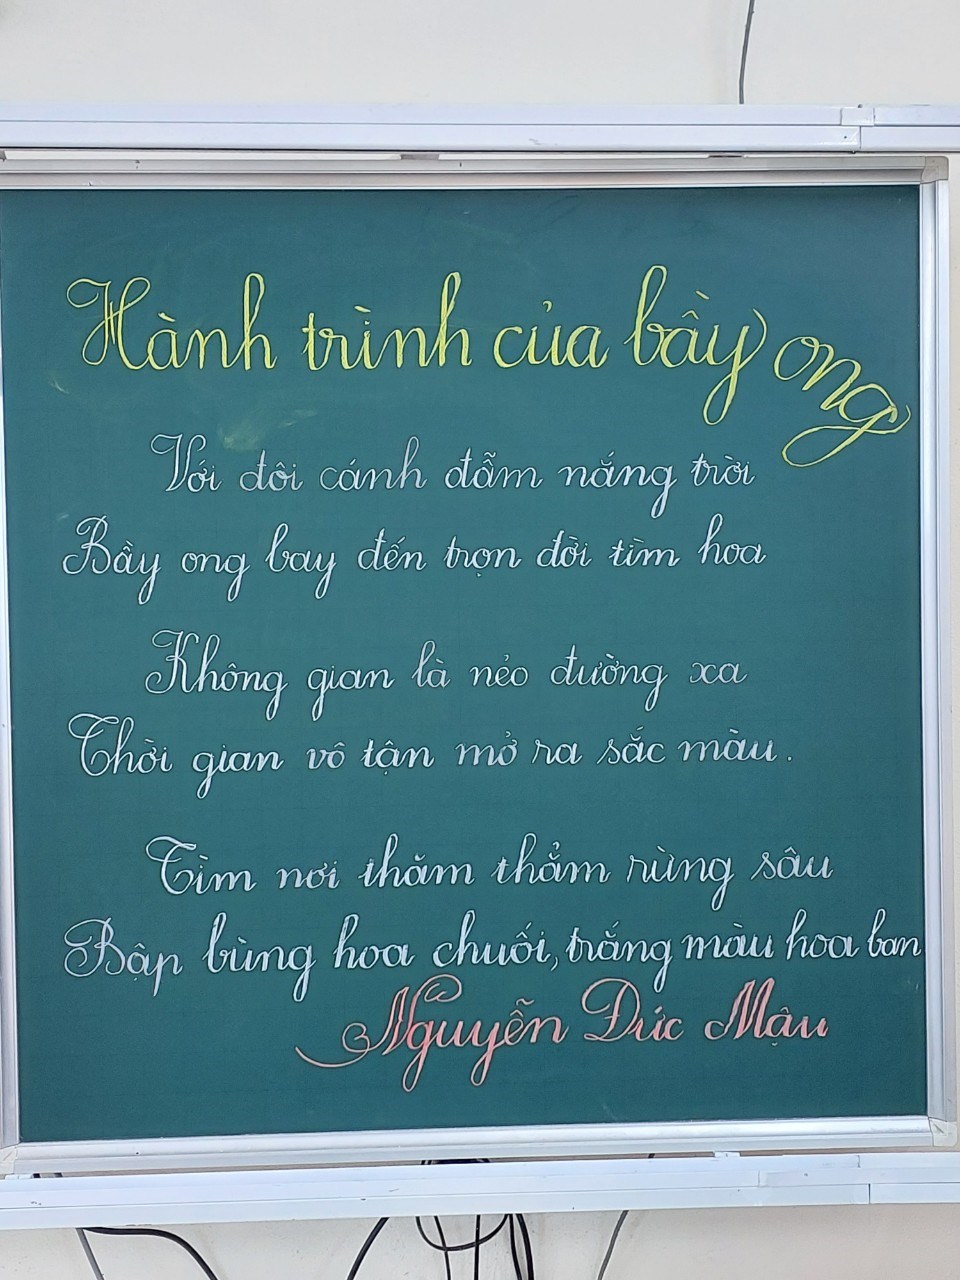 Hành trình của bầy ong
Với đôi cánh đẫm nắng trời
Bầy ong bay đến trọn đời tìm hoa
Không gian là nẻo đường xa
Thời gian vô tận mở ra sắc màu.
Tìm nơi thăm thẳm rừng sâu
Bập bùng hoa chuối, trắng màu hoa ban
Nguyễn Đức Mậu